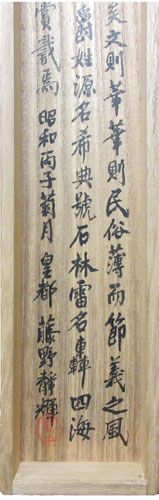 矣文則華華則民俗薄而節義之風
爵姓源名希典號石林雷名轟四海
賞戴焉 昭和丙子菊月 皇都 藤野靜輝